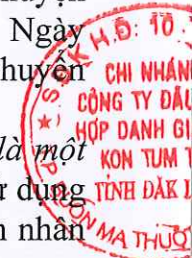 Ngày
huyện
là một
dụng
nhân
S.Đ.K.H.Đ: 10
CHI NHÁNH
CÔNG TY ĐẤU
HỢP DANH GI
KON TUM T
TỈNH ĐẮK
MA THUỘ